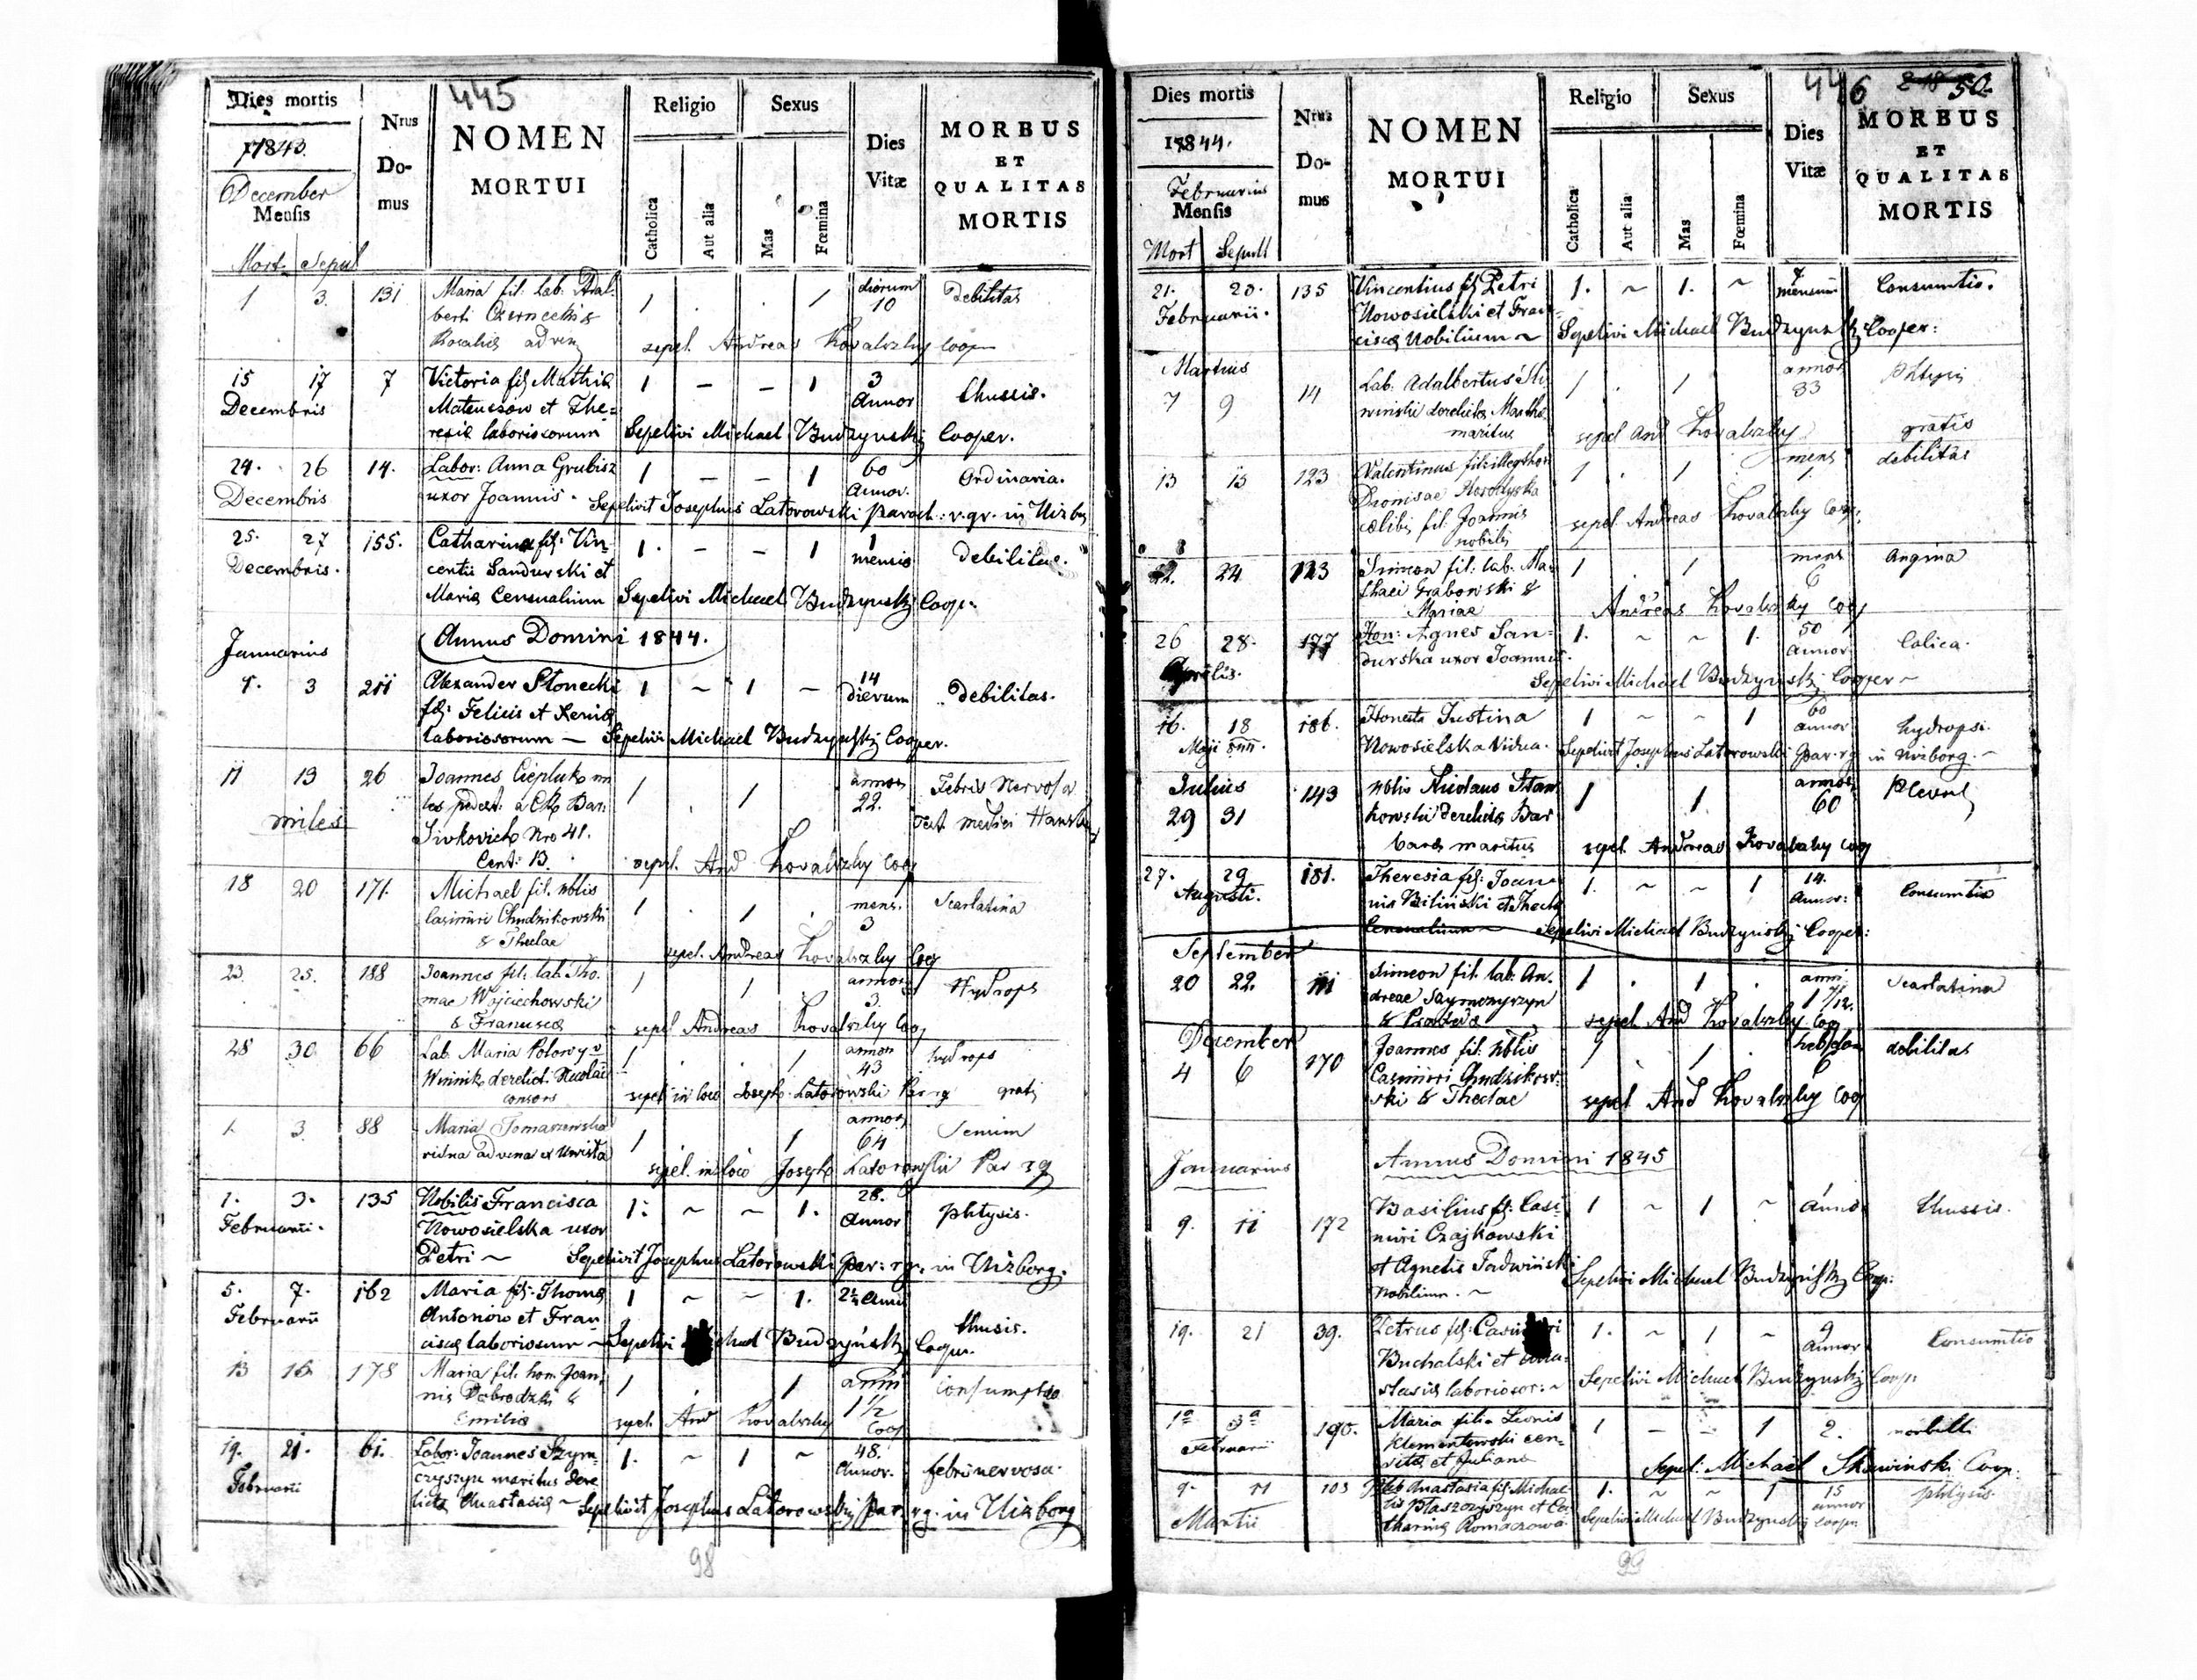 445
Dies mortis
Nrus Domus
NOMEN MORTUI
Religio
Sexus
Catholica
Aut alia
Mas
Fœmina
Dies Vitæ
MORBUS ET QUALITAS MORTIS
1843.
December
Mensis
Mort. Sepul
1 3. 131 Maria fil: lab. Adal- 1 . . 1 dierum 10 Debilitas
berti Czernecki &
Rosalia adven sepel. Andreas Kovalszky Coop
15 17 7 Victoria fil: Mathia 1 – – 1 3 Annor Thussis.
Decembris Mateuszow et The=
resia laboriosorum Sepelivi Michael Budzynski Cooper.
24. 26 14. Labor: Anna Grubisz 1 – – 1 60 Annor. Ordinaria.
Decembris uxor Joannis. Sepelivit Josephus Latorowski paroch: r. gr. in Uizbg
25. 27 155. Catharina fil: Vin- 1. – – 1 1 mensis Debilitas.
Decembris. centii Sandurski et
Maria Censualium Sepelivi Michael Budzynski Coop.
Januarius Annus Domini 1844.
1. 3 211 Alexander Słonecki 1 ~ 1 ~ 14 Dierum Debilitas.
fil: Felicis et Xenia
laboriosorum – Sepelivi Michael Budzynski Cooper.
11 13 26 Joannes Ciepluk mi 1 . 1 annor 22. Febris Nervosa
les pedest: a
miles Nro 41.
Cent: 13. sepel. And Kovalszky Coop
18 20 171. Michael fil. Nblis 1 . 1 . mens. 3 Scarlatina
Casimiri Chudzikowski
& Theclae sepel. Andreas Kovalszky Coop
23. 25. 188 Joannes fil: lab. Tho. 1 1 . annor 3. Hydrops
mae Wojciechowski
& Francisca sepel Andreas Kovalszky Coop
28 30 66 Lab. Maria Polowy 1 . . 1 annor 43 hydrops
Winnik derelict. Nicolai
consors sepel in loco Joseph. Latorowski Par rg gratis
1. 3. 88 Maria Tomaszewska 1 . . 1 annor 64 Senium
vidua advena ex
sepel. in loco Joseph Latorowski Par rg
1. 3. 135 Nobilis Francisca 1. ~ ~ 1. 28. Annor phtysis.
Februarii. Nowosielska uxor
Petri ~ Sepelivit Josephus Latorowski par: r. gr. in Uizborg.
5. 7. 162 Maria fil: Thoma 1 ~ ~ 1. Thusis.
Februarii Antonow et Fran
cisca laboriosum ~ Sepelivi Budzynski Coper.
13 15 178 Maria fil. hon. Joan 1 . 1 anni 1½ Consumptio
nis Dobrodzki &
Emilia sepel. And Kovalszky Coop
19. 21. 61. Labor: Joannes Szym 1. ~ 1 ~ 48. Annor. febri nervosa.
Februarii czyszyn maritus dere
licta Anastasia ~ Sepelivit Josephus Latorowski par. rg. in Uizborg
98
446 50.
Dies mortis
Nrus Domus
NOMEN MORTUI
Religio
Sexus
Catholica
Aut alia
Mas
Fœmina
Dies Vitæ
MORBUS ET QUALITAS MORTIS
1844.
Februarius
Mensis
Mort Sepult
21. 23. 135 Vincentius fil Petri 1. ~ 1. ~ mensium Consumtio.
Februarii. Nowosielski et Fran=
cisca Nobilium ~ Sepelivi Michael Budzynski Cooper:
Martius
7 9 14 Lab. Adalbertus Śli 1 . 1 annor 33 Phtysis
winski derelicta Martha
maritus sepel And Kovalszky gratis
13 15 123 Valentinus fil: illeg thori 1 . 1 mens 1. debilitas
Dionisae Horodyska
celibis fil: Joannis
nobilis sepel. Andreas Kovalszky Coop.
22. 24 123 Simeon fil: lab. Ma 1 . 1 mens 6 Angina
thaei Grabowski &
Mariae Andreas Kovalszky Coop
26 28. 177 Hon: Agnes San= 1. ~ ~ 1. 50 annor Colica.
Aprilis. durska uxor Joannis.
Sepelivi Michael Budzynski Cooper ~
16. 18 186. Honesta Justina 1 ~ ~ 1 60 annor hydropsi.
Maji Nowosielska Vidua. Sepelivit Josephus Latorowski par. rg in Uizborg. ~
Julius
29 31 143 Nblis Nicolaus Stan 1 1. annor 60
kowski derelicta Bar
bara maritus sepel. Andreas Kovalszky Coop
27. 29 181. Theresia fil: Joan= 1. ~ ~ 1 14. Annor: Consumtio
Augusti. nis Biliński et Thecla
Censualium ~ Sepelivi Michael Budzynski Cooper:
September
20 22. 111 Simeon fil. lab. An. 1 . 1 . anni Scarlatina
dreae Szymczyszyn
& sepel And Kovalszky Coop
December
4 6 170 Joannes fil. Nblis 1 . 1 . hebdom 6 debilitas
Casimiri Chudzikow-
ski & Theclae sepel And Kovalszky Coop
Januarius Annus Domini 1845
9. 11 172 Basilius fil: Casi- 1 ~ 1 ~ Thussis.
miri Czajkowski
et Agnetis Jadwiński
Nobilium. ~ Sepelivi Michael Budzyński Coop:
19. 21 39. Petrus fil: Casimiri 1. ~ 1 ~ 9 Annor Consumtio
Buchalski et Ana=
stasia laborior: ~ Sepelivi Michael Budzynski Coop:
1a 3a 190. Maria filia Leonis 1 – – 1 2. morbilli
Februarii Klementowski cen=
sita et Juliana Sepel: Michael Skawinski Coop.
9. 11 103 Anastasia fil: Michae 1. ~ ~ 1 15 annor phtysis.
Martii lis Ptaszczyszyn et Ca
tharina Romaczowa Sepelivi Michael Budzynski Coopr.
99